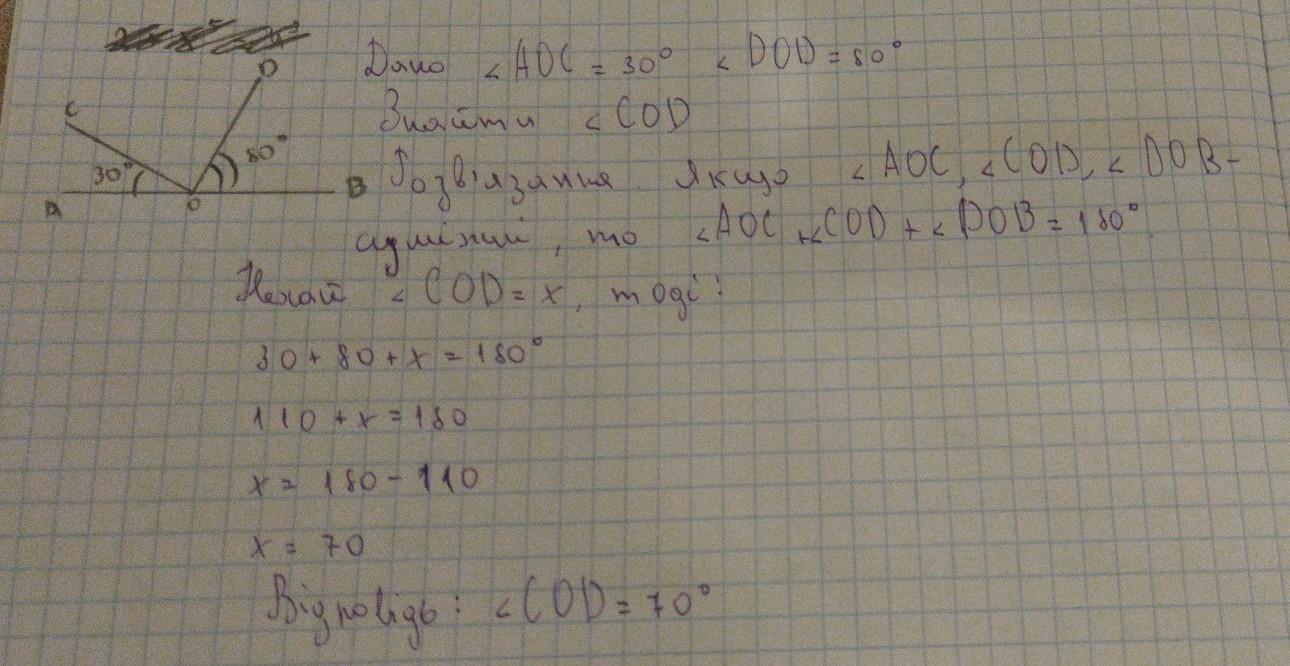 Дано < AOC = 30° < DOD = 80°
Знайти < COD
D
C
80°
30°
A
O
B
Розв'язання. Якщо < AOC, < COD, < DOB -
суміжні, то < AOC + < COD + < DOB = 180°.
Нехай < COD = x, тоді:
30 + 80 + x = 180°
110 + x = 180
x = 180 - 110
x = 70
Відповідь: < COD = 70°